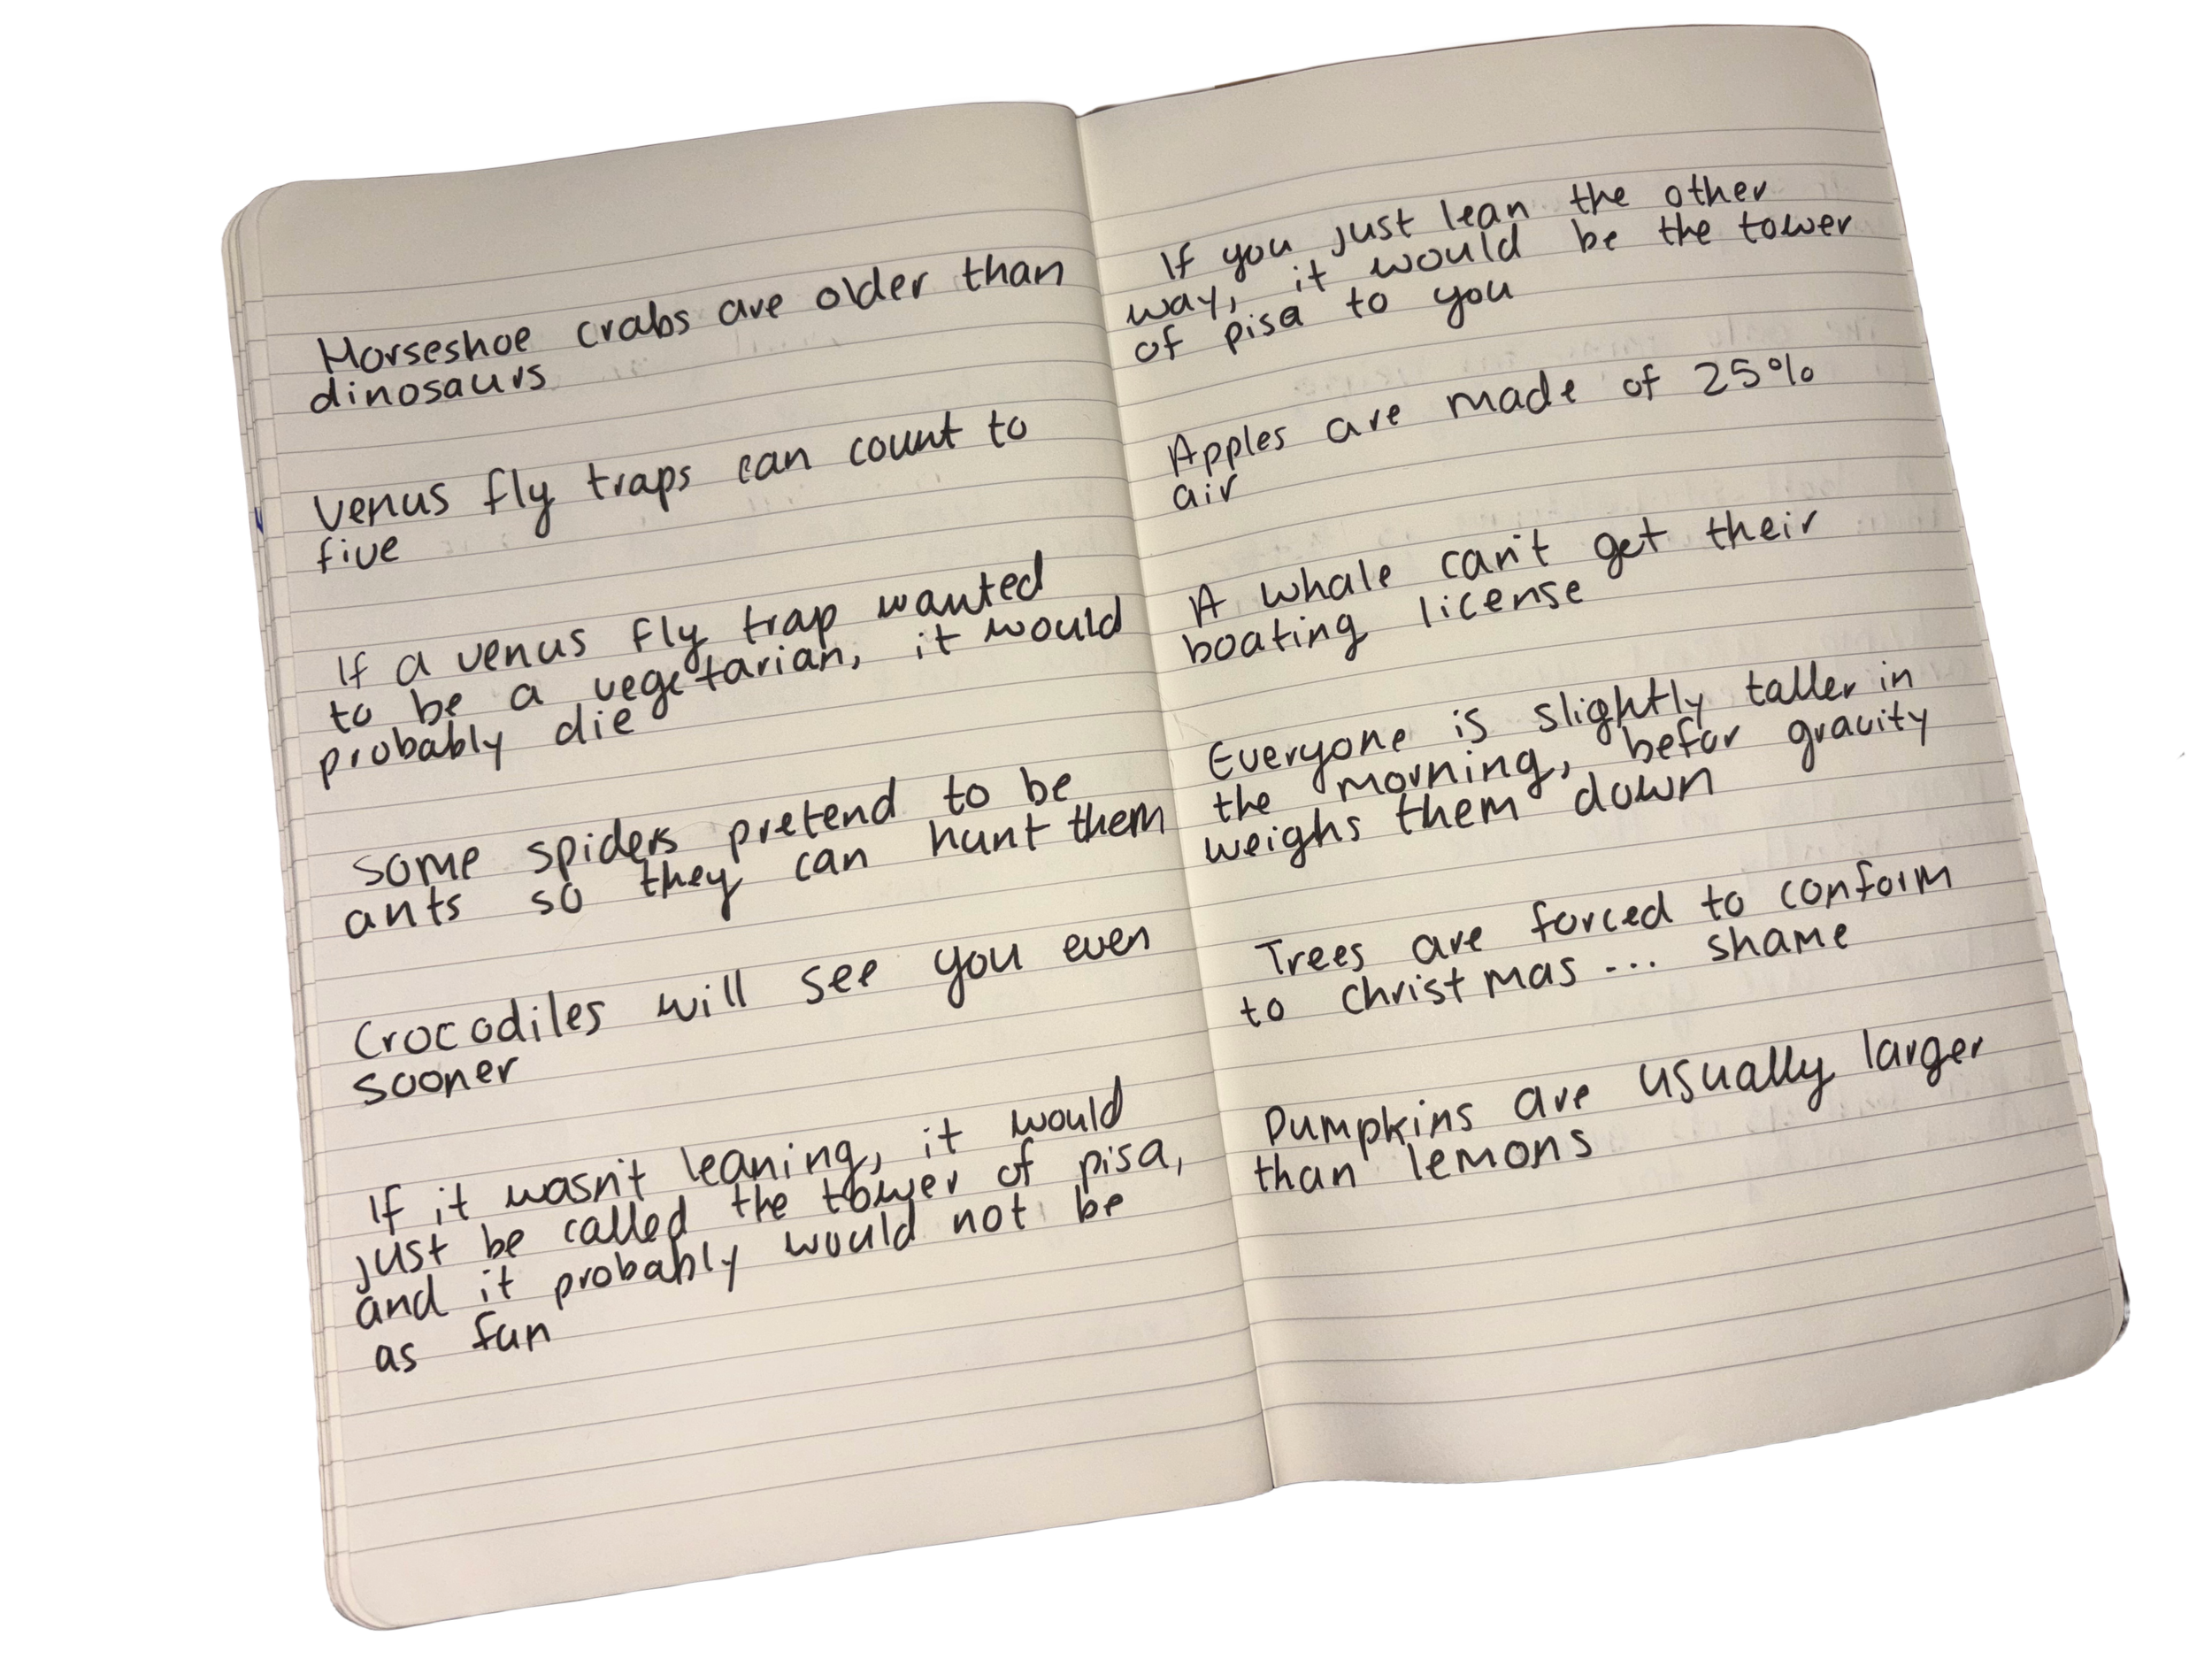 Horseshoe crabs are older than
dinosaurs
Venus fly traps can count to
five
If a venus fly trap wanted
to be a vegetarian, it would
probably die
Some spiders pretend to be
ants so they can hunt them
Crocodiles will see you even
sooner
If it wasn't leaning, it would
just be called the tower of pisa,
and it probably would not be
as fun
If you just lean the other
way, it would be the tower
of pisa to you
Apples are made of 25%
air
A whale can't get their
boating license
Everyone is slightly taller in
the morning, befor gravity
weighs them down
Trees are forced to conform
to christmas... shame
Pumpkins are usually larger
than lemons